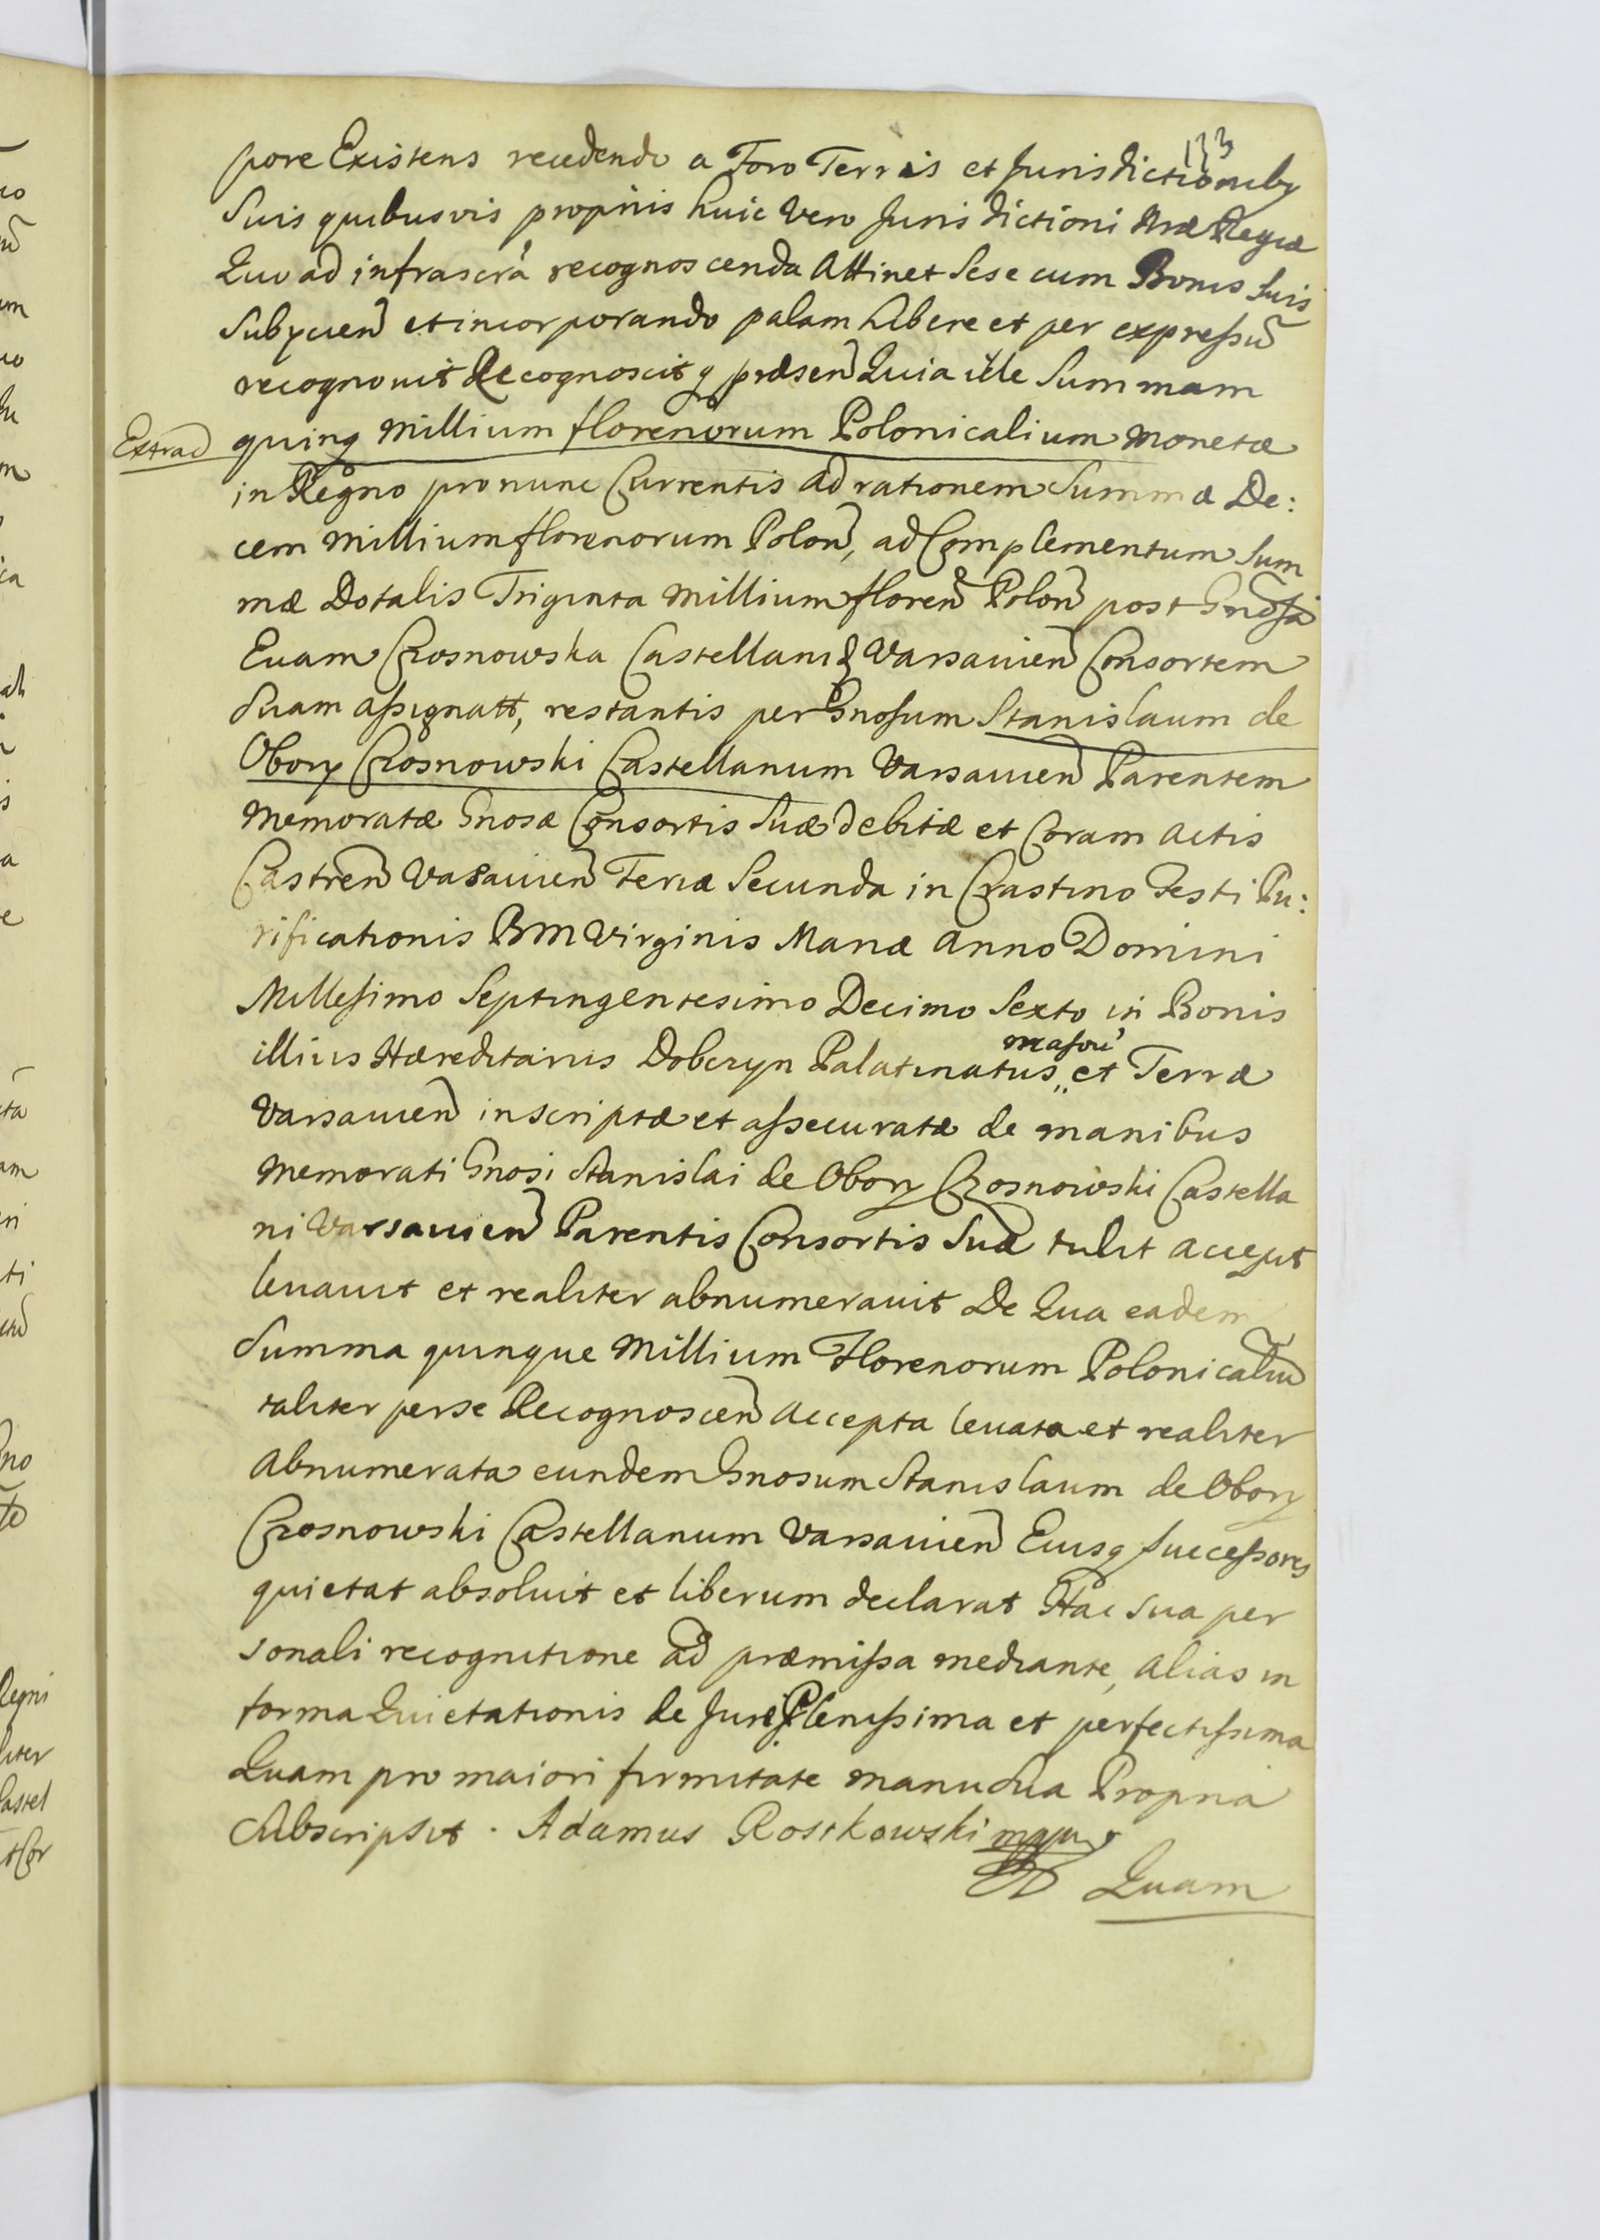 133
pore Existens recedendo a Foro Terris et Jurisdictionibꝫ
Suis quibusvis proprijs huic vero Jurisdictioni Nræ Regiæ
Quo ad infrascra recognoscenda Attinet Sese cum Bonis suis
Subycień et incorporando palam libere et per expressũ
recognovit Recognoscitqꝫ præseń Quia ille Summam
Extrad quinqꝫ Millium florenorum Polonicalium Monetæ
in Regno pro nunc Currentis ad rationem Summæ De:
cem Millium florenorum Poloń, ad Complementum Sum
mæ Dotalis Triginta Millium floreń Poloń post Gnosã
Evam Krosnowska Castellanidę Varsavień Consortem
Suam assignatt, restantis per Gnosum Stanislaum de
Obory Krosnowski Castellanum Varsavień Parentem
Memoratæ Gnosæ Consortis Suæ debitæ et Coram Actis
Castreń Vasavień Feria Secunda in Crastino Festi Pu:
rificationis BM Virginis Mariæ Anno Domini
Millesimo Septingentesimo Decimo Sexto in Bonis
masoů
illius Hæreditarijs Dobczyn Palatinatus,, et Terræ
Varsavień inscriptæ et assecuratæ de manibus
Memorati Gnosi Stanislai de Obory Krosnowski Castella
ni Varsavień Parentis Consortis Suæ tulit accepit
levavit et realiter abnumeravit De Qua eadem
Summa quinque Millium Florenorum Polonicaliũ
taliter per se Recognosceń accepta levata et realiter
Abnumerata eundem Gnosum Stanislaum de Obory
Krosnowski Castellanum Varsavień Eiusqꝫ successores
quietat absolvit et liberum declarat Hac sua per
sonali recognitione ad præmissa mediante, alias in
forma Quietationis de Jure Plenissima et perfectissima
Quam pro maiori firmitate manu sua Propria
Subscripsit. Adamus Rostkowski mpp
Quam